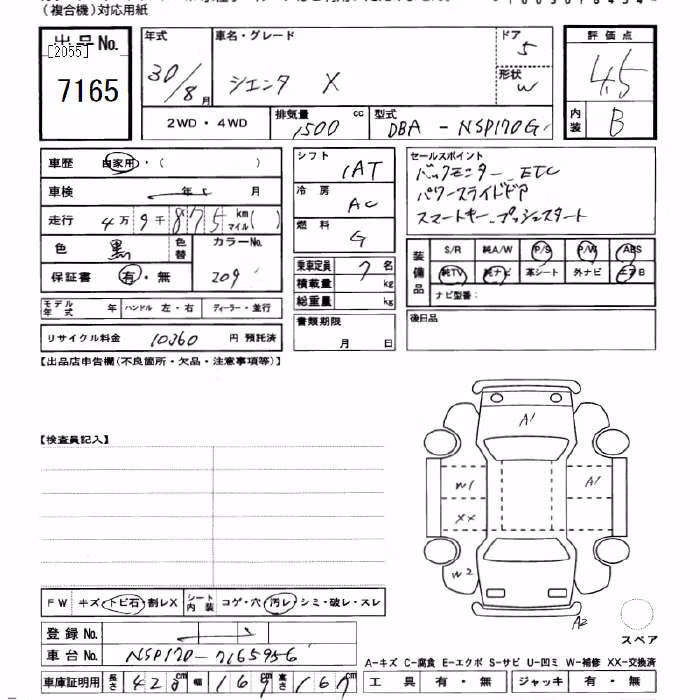 (複合機)対応用紙
出品No.
[2055]
7165
年式
30/8月
車名・グレード
シエンタ X
ドア
5
形状
W
評価点
4.5
内装
B
2WD・4WD
排気量
1500 cc
型式
DBA - NSP170G
車歴 自家用・( )
車検 年 月
走行 4万9千875 km マイル( )
色 黒 色替 カラーNo.
保証書 有・無 209
モデル年式 年 ハンドル 左・右 ディーラー・並行
リサイクル料金 10360 円 預託済
シフト
IAT
冷房
AC
燃料
G
乗車定員 7 名
積載量 kg
総重量 kg
書類期限
月 日
セールスポイント
バックモニター、ETC
パワースライドドア
スマートキー、プッシュスタート
装備品
S/R 純A/W P/S P/W ABS
純TV 純ナビ 革シート 外ナビ エアB
ナビ型番:
後日品
【出品店申告欄(不良箇所・欠品・注意事項等)】
【検査員記入】
A1
W1
A1
XX
W2
A2
スペア
FW キズ トビ石・割レX シート内装 コゲ・穴 汚レ・シミ・破レ・スレ
登録No.
車台No. NSP170-7165956
車庫証明用 長さ 423cm 幅 169cm 高さ 167cm
A-キズ C-腐食 E-エクボ S-サビ U-凹ミ W-補修 XX-交換済
工具 有・無 ジャッキ 有・無